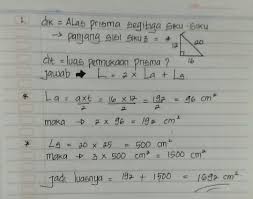 1. dik = Alas prisma segitiga siku-siku
→ panjang sisi siku² =
12 20
16
dit = luas permukaan prisma ?
jawab → L = 2 x La + Ls
* La = axt/2 = 16 x 12/2 = 192/2 = 96 cm²
maka → 2 x 96 = 192 cm²
* Ls = 20 x 25 = 500 cm²
maka → 3 x 500 cm² = 1500 cm²
jadi luasnya = 192 + 1500 = 1692 cm²